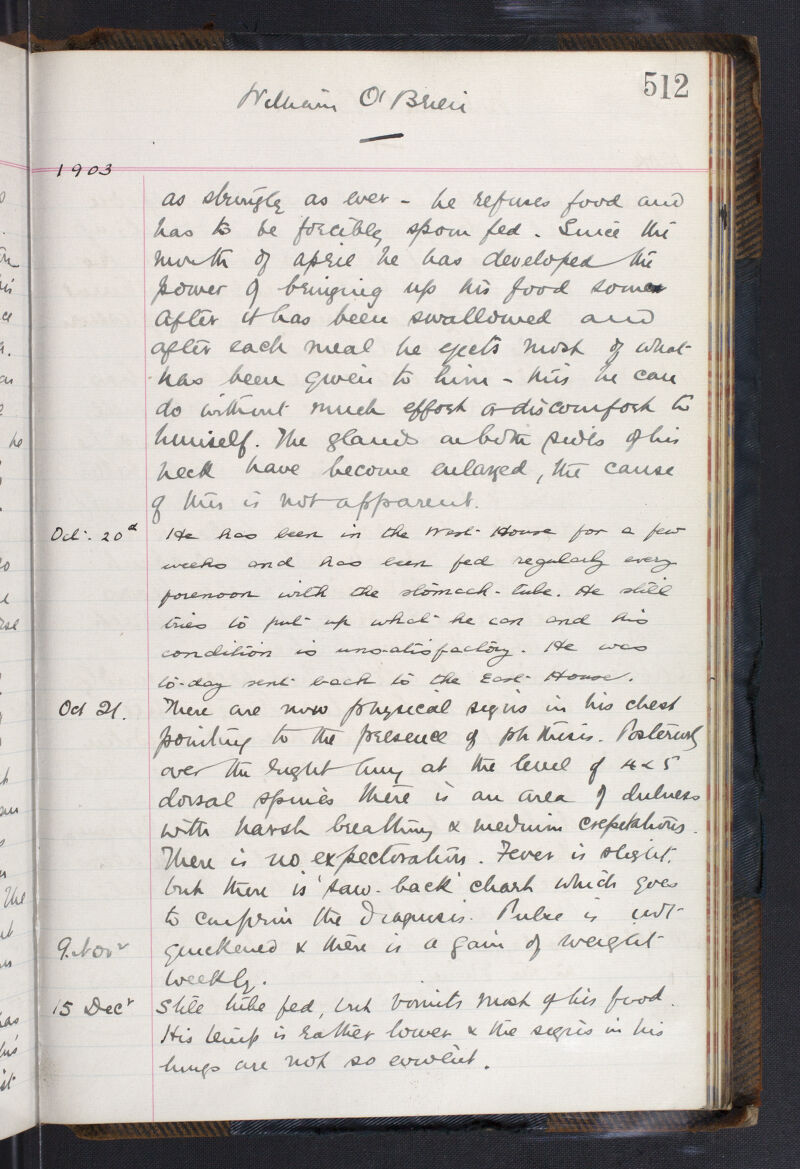 512
William O'Brien
1903
as strongly as ever - he refuses food and
has to be forcibly spoon fed. Since the
month of april he has developed the
power of bringing up his food some
after it has been swallowed and
after each meal he ejects most of what
has been given to him - this he can
do without much effort or discomfort to
himself. The glands on both sides of his
neck have become enlarged, the cause
of this is not apparent.
Oct. 20d He has been in the West House for a few
weeks and has been fed regularly every
forenoon with the stomach-tube. He still
tries to put up what he can and his
condition is unsatisfactory. He was
to-day sent back to the East House.
Oct 21. There are now physical signs in his chest
pointing to the presence of phthisis. Posteriorly
over the right lung at the level of 4 & 5
dorsal spines there is an area of dulness
with harsh breathing & medium crepitations.
There is no expectoration. Fever is slight,
but there is 'saw-back' chart which goes
to confirm the diagnosis. Pulse is not
9. Novr quickened & there is a gain of weight
weekly.
15 Decr Still tube fed, but vomits most of his food.
His temp is rather lower & the signs in his
lungs are not so evident.